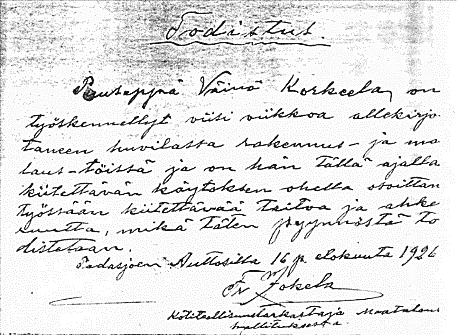 Todistus.
Puuseppä Väinö Korkeela, on
työskennellyt viisi viikkoa allekirjo-
taneen huvilassa rakennus- ja ma
laus-töissä ja on hän tällä ajalla
kiitettävän käytöksen ohella osoittan
työssään kiitettävää taitoa ja ahke
ruutta, mikä täten pyynnöstä to
distetaan.
Padasjoen Auttoisilla 16 p. elokuuta 1926
Jokela
Kotiteollisuustarkastaja Maatalous
hallituksesta